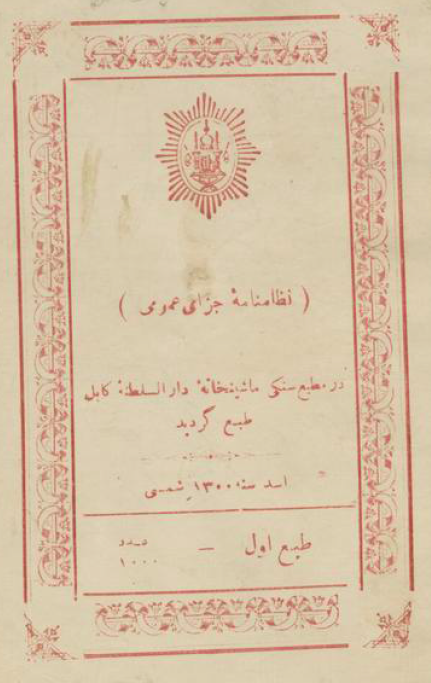 ( نظامنامهٔ جزای عمومی )
در مطبع سنگی ماشینخانهٔ دار السلطنهٔ کابل
طبع گردید
اسد سنه ۱۳۰۰ شمسی
طبع اول — عدد ۱۰۰۰